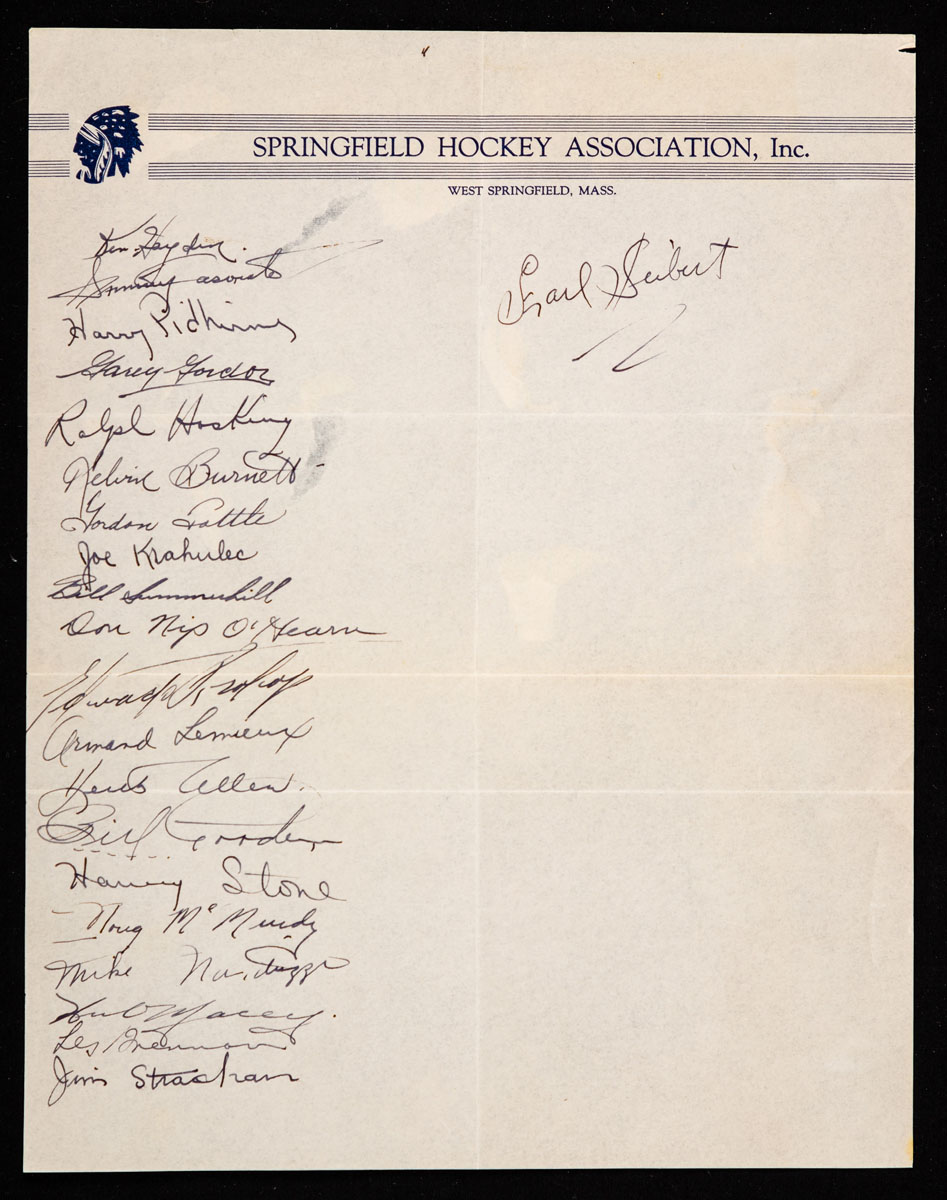 SPRINGFIELD HOCKEY ASSOCIATION, Inc.
WEST SPRINGFIELD, MASS.
Earl Seibert
Ken Hayden.
Harry Pidhirny
Garey Gordon
Ralph Hosking
Kelvin Burnett
Gordon Tottle
Joe Krahulec
Bill Summerhill
Don Nip O'Hearn
Edward Prokop
Armand Lemieux
Herb Allen.
Bill Gooden
Harvey Stone
Doug McMurdy
Mike Narduzzi
Hub Macey.
Les Brennan
Jim Strachan